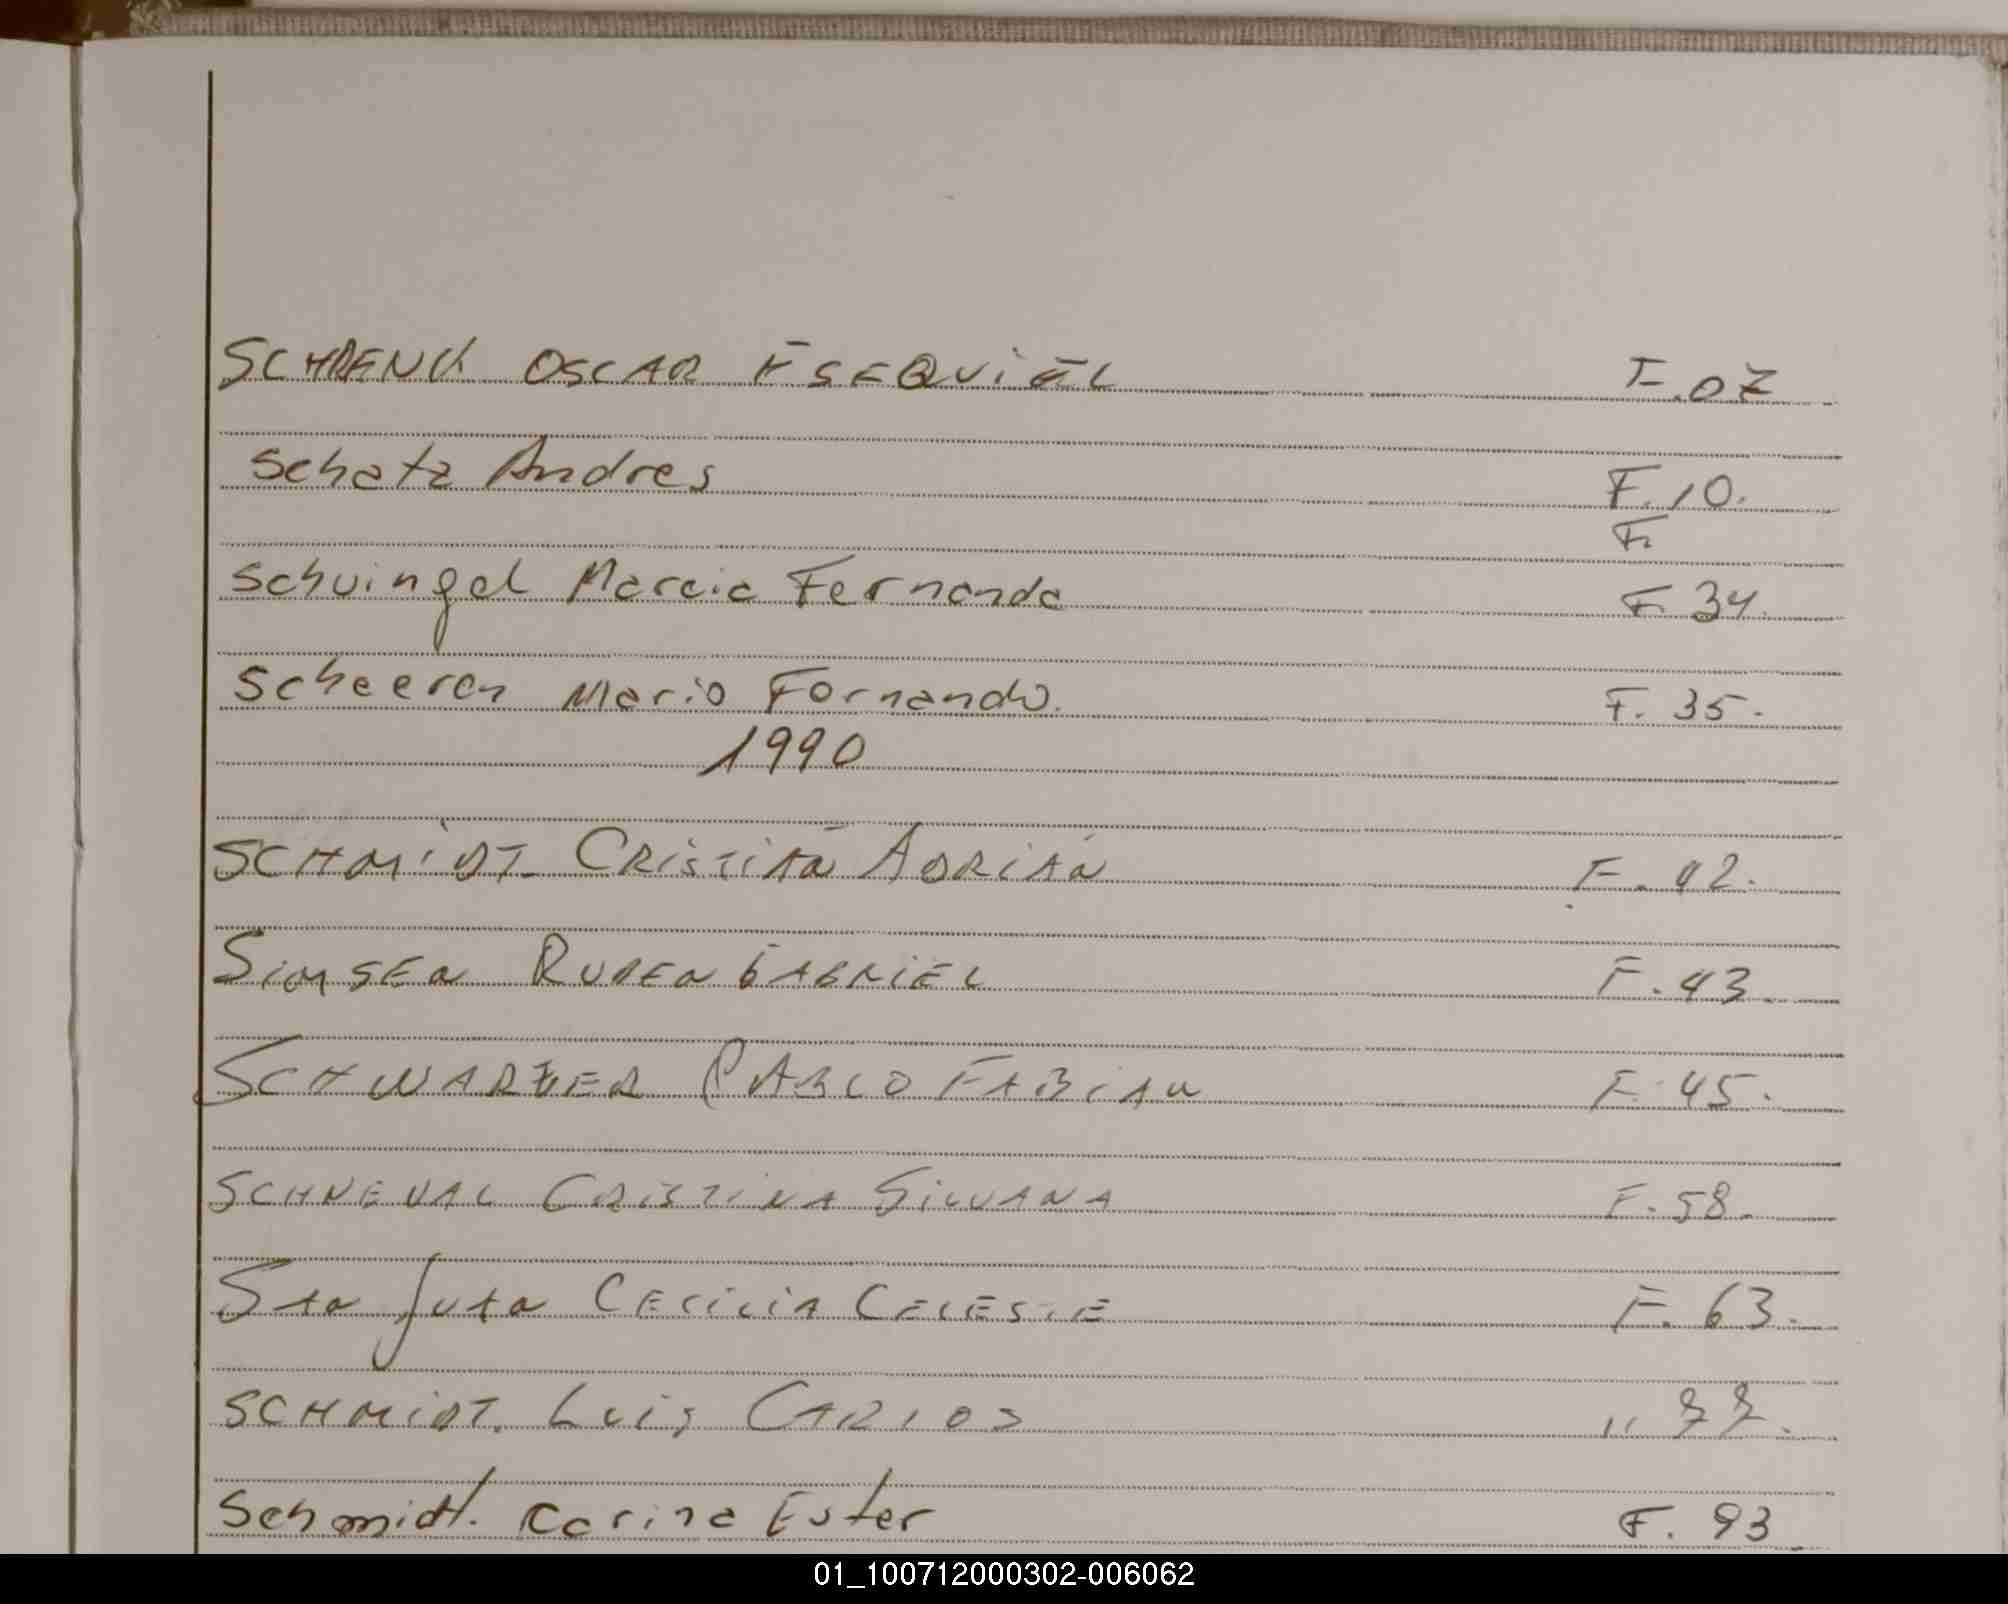 SCHRENK OSCAR ESEQUIEL F.07
Schatz Andres F.10.
F.
Schvingel Marcia Fernanda F. 34.
Scheeren Mario Fernando. F. 35.
1990
SCHMIDT. CRISTIAN ADRIAN F. 42.
SIMSEN RUBEN GABRIEL F. 43.
SCHWARZER PABLO FABIAN F. 45.
SCHNEVAL CRISTINA SILVANA F. 58.
CECILIA CELESTE F. 63.
SCHMIDT. LUIS CARLOS "
Schmidt. Carina Ester F. 93
01_100712000302-006062